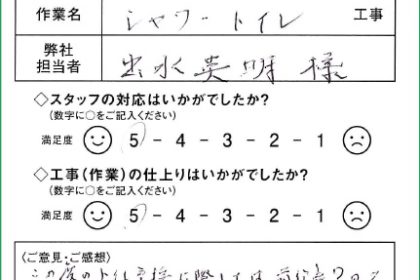 作業名 シャワートイレ 工事
弊社担当者 出水英明 様
◇スタッフの対応はいかがでしたか?
(数字に○をご記入ください)
満足度 5 - 4 - 3 - 2 - 1
◇工事(作業)の仕上りはいかがでしたか?
(数字に○をご記入ください)
満足度 5 - 4 - 3 - 2 - 1
〈ご意見・ご感想〉
この度のトイレ